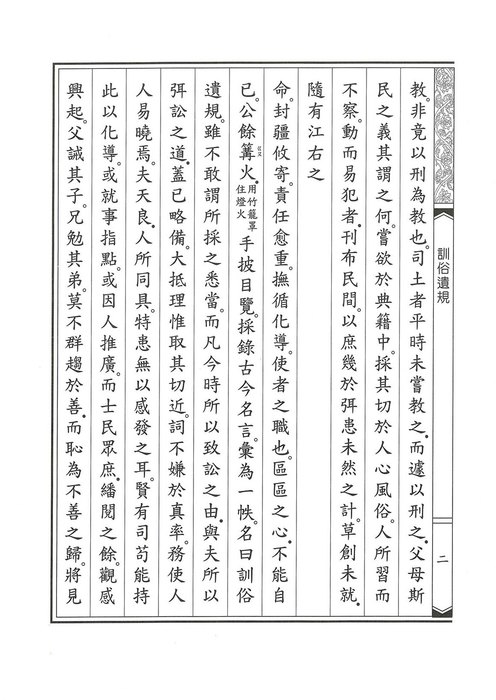 訓俗遺規
二
教。非竟以刑為教也。司土者平時未嘗教之。而遽以刑之。父母斯
民之義其謂之何。嘗欲於典籍中。採其切於人心風俗。人所習而
不察。動而易犯者。刊布民間。以庶幾於弭患未然之計。草創未就。
隨有江右之
命。封疆攸寄。責任愈重。撫循化導。使者之職也。區區之心。不能自
已。公餘篝火。用竹籠罩住燈火手披目覽。採錄古今名言。彙為一帙。名曰訓俗
遺規。雖不敢謂所採之悉當。而凡今時所以致訟之由。與夫所以
弭訟之道。蓋已略備。大抵理惟取其切近。詞不嫌於真率。務使人
人易曉焉。夫天良。人所同具。特患無以感發之耳。賢有司苟能持
此以化導。或就事指點。或因人推廣。而士民眾庶。繙閱之餘。觀感
興起。父誡其子。兄勉其弟。莫不群趨於善。而恥為不善之歸。將見